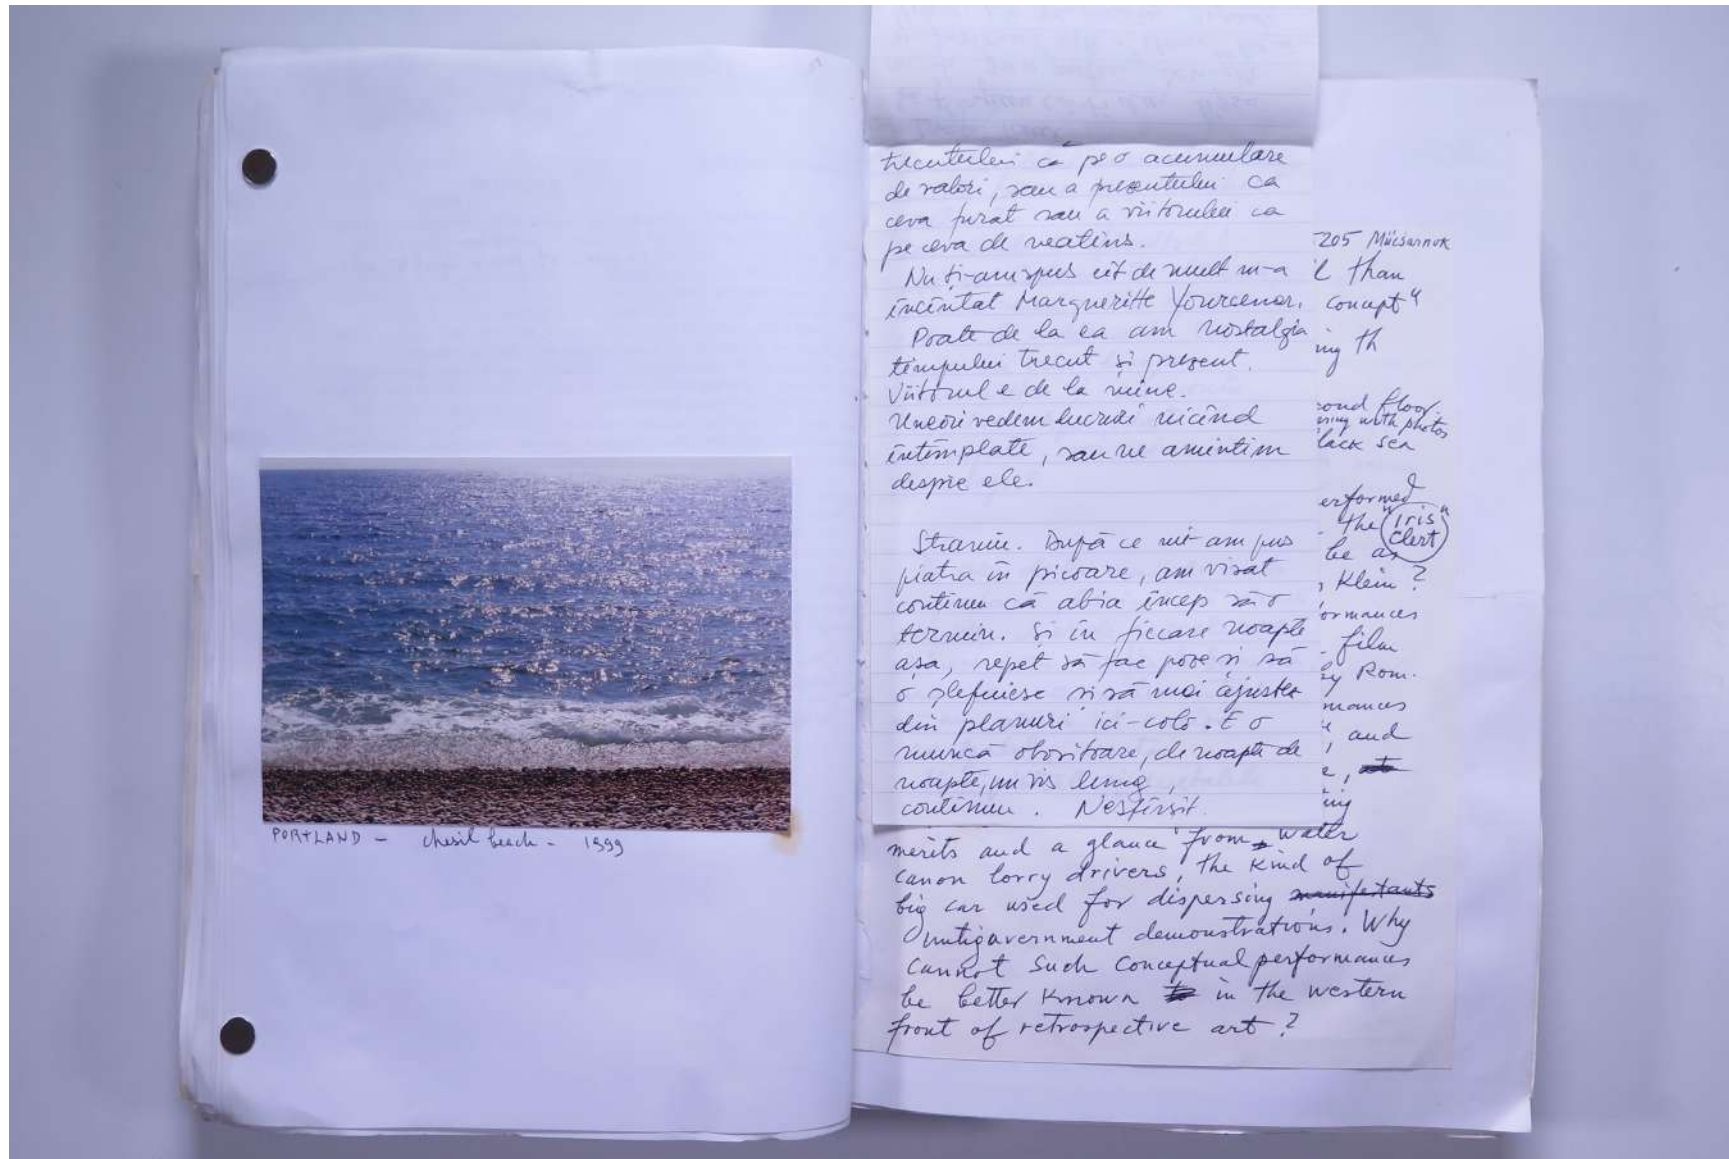 PORTLAND - chesil beach - 1999
trecutului ca pe o acumulare
de valori, sau a prezentului ca
ceva furat sau a viitorului ca
pe ceva de neatins.
Nu ți-am spus cît de mult m-a
încîntat Margueritte Yourcenar.
Poate de la ea am nostalgia
timpului trecut și prezent.
Viitorul e de la mine.
Uneori vedem lucruri nicînd
întîmplate, sau ne amintim
despre ele.
Straniu. După ce am pus
piatra în picioare, am visat
continuu că abia încep să o
termin. Și în fiecare noapte
așa, repet să fac poze și să
o șlefuiesc și să mai ajustez
din planuri ici-colo. E o
muncă obositoare, de noapte de
noapte, un vis lung,
continuu. Nesfîrșit.
205 Műcsarnok
than
concept"
ing th
ond floor.
with photos
lack sea
erformed
the "Iris
Clert"
be as
Klein?
ormances
film
by Rom.
mances
and
merits and a glance from water
canon lorry drivers, the kind of
big car used for dispersing manifestants
antigavernment demonstrations. Why
cannot such conceptual performances
be better known to in the western
front of retrospective art?